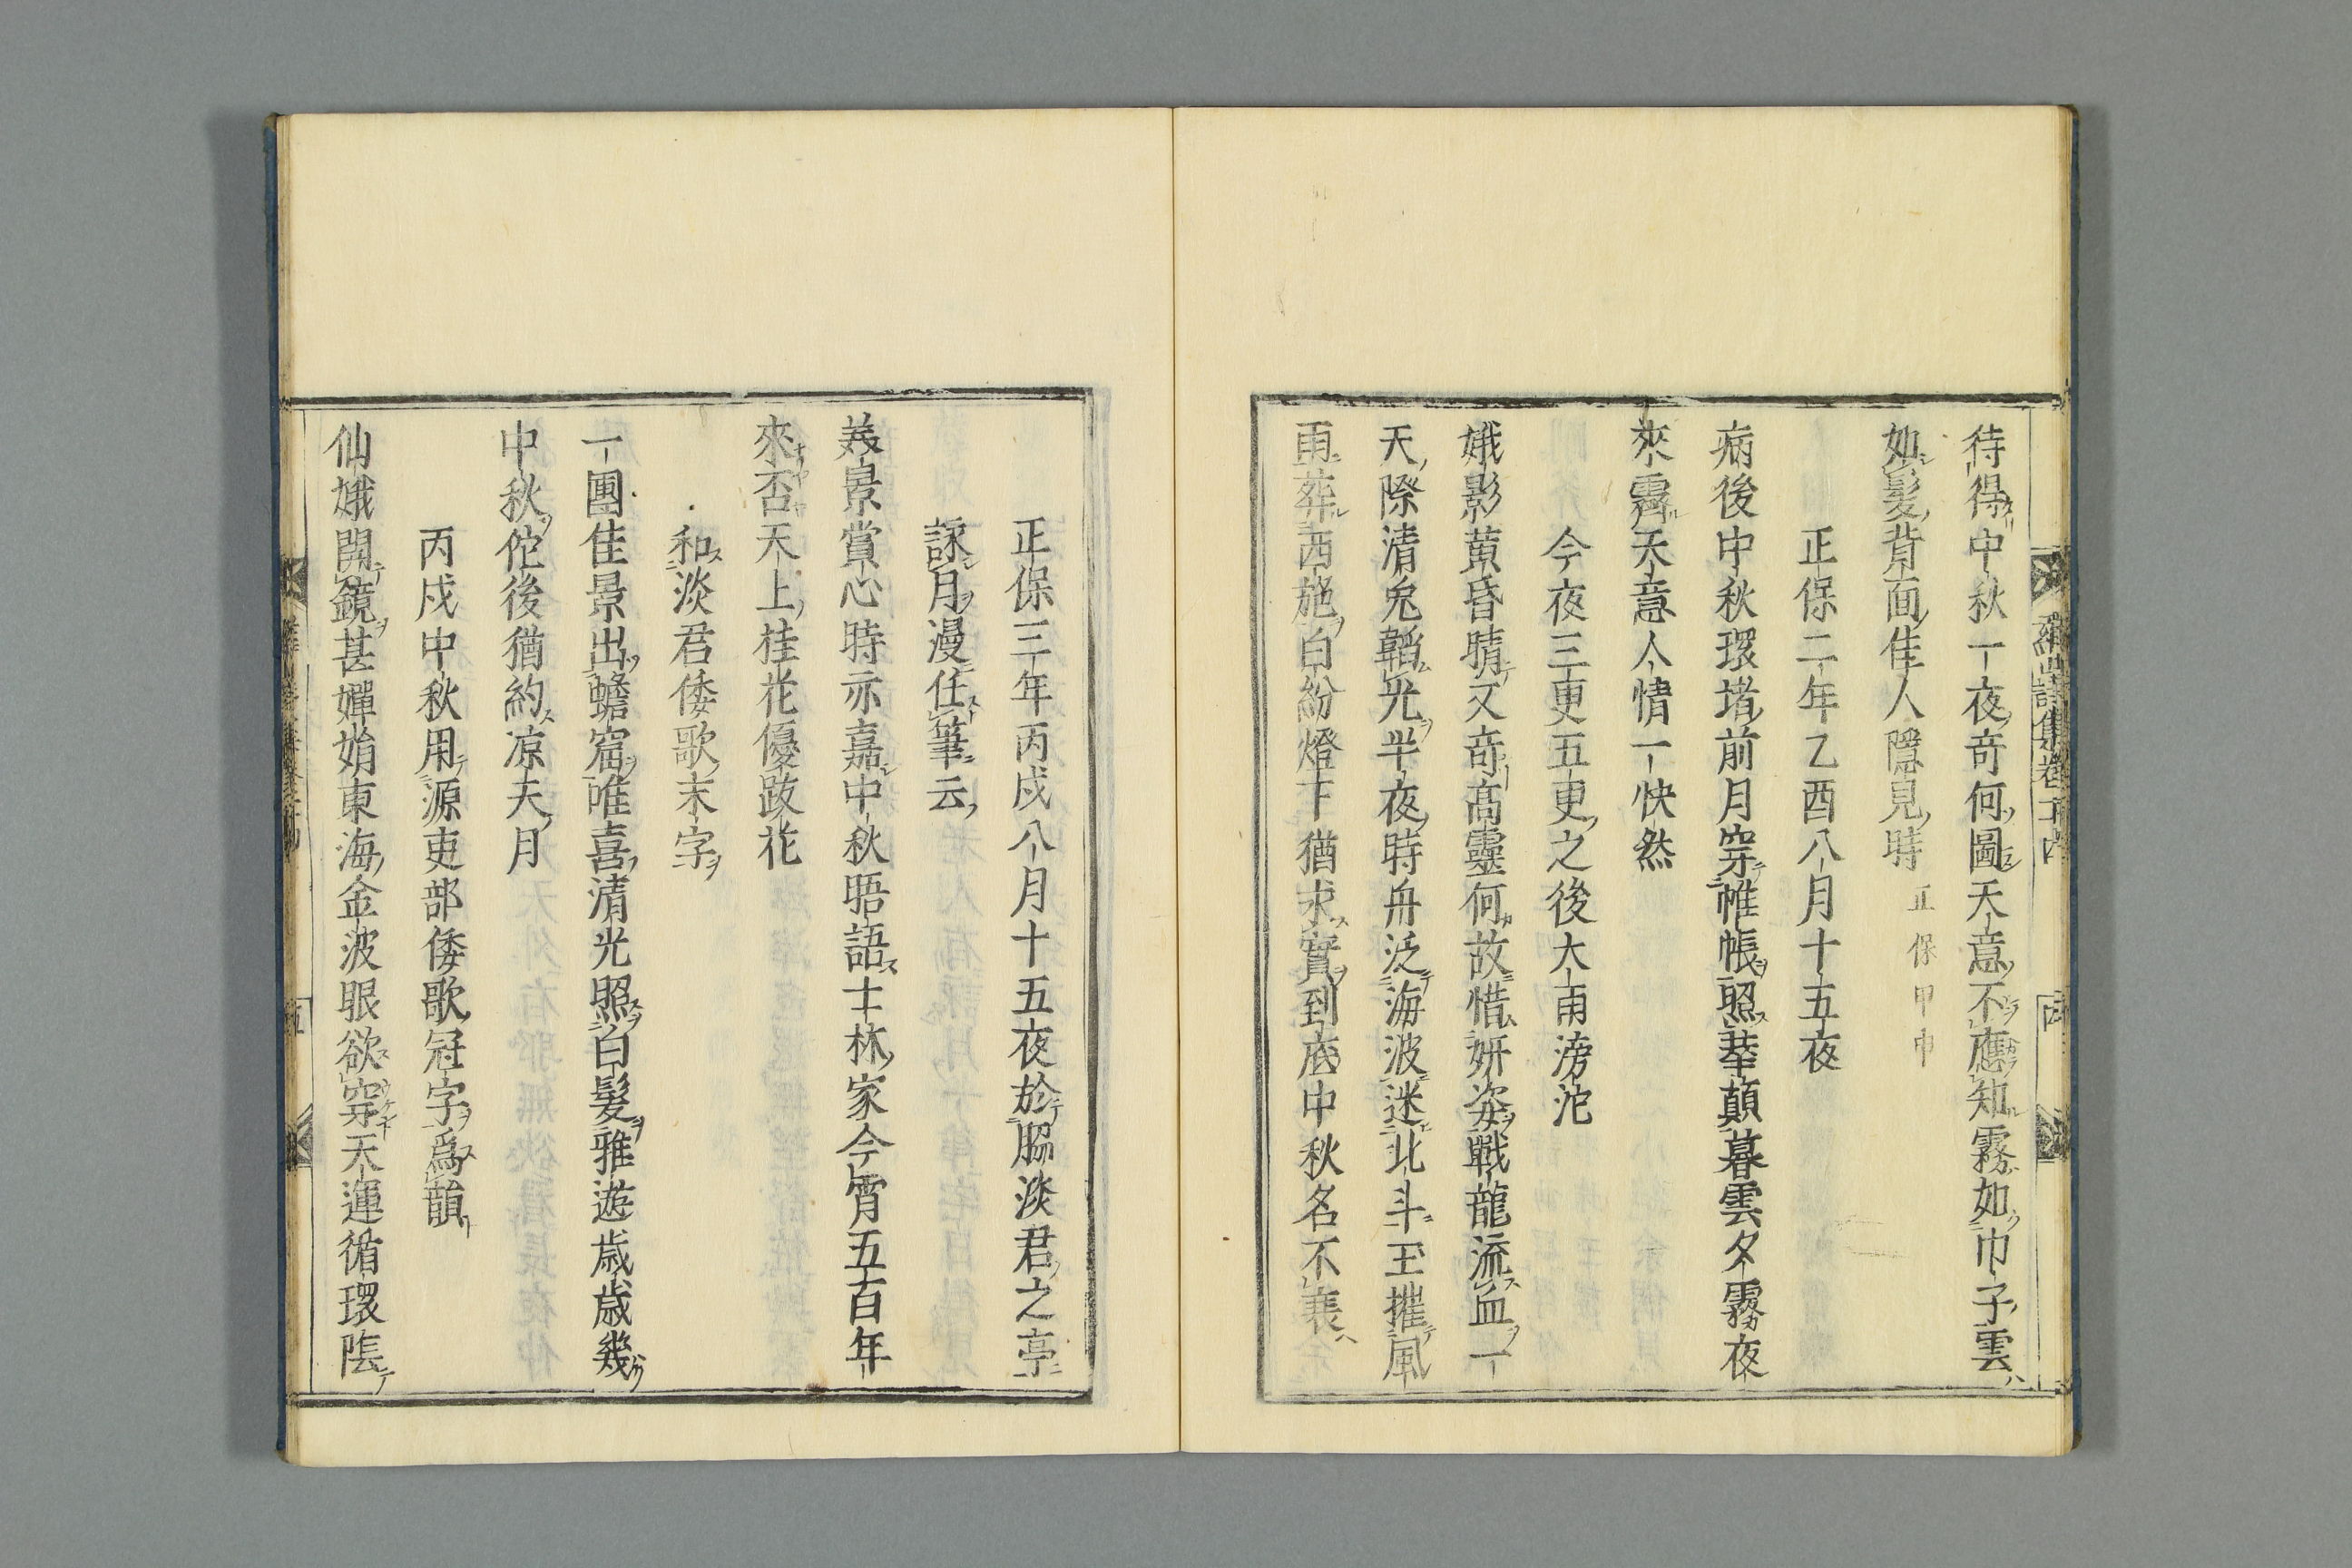 待得中秋一夜奇何圖天意不應知霧如巾子雲
如髪背面佳人隱見時 正保甲申
正保二年乙酉八月十五夜
病後中秋環堵前月穿帷帳照華顛暮雲夕霧夜
來霽天意人情一快然
今夜三更五更之後大雨滂沱
娥影黃昏晴又奇高靈何故惜妍姿戰龍流血一
天際清兔韜光半夜時舟泛海波迷北斗玉摧風
雨葬西施白紛燈下猶求實到底中秋名不衰
正保三年丙戌八月十五夜於脇淡君之亭
詠月漫任筆云
美景賞心時亦嘉中秋晤語士林家今宵五百年
來否天上桂花優跋花
和淡君倭歌末字
一團佳景出蟾窟唯喜清光照白髮雅遊歳歳幾
中秋佗後猶約凉天月
丙戌中秋用源吏部倭歌冠字爲韻
仙娥開鏡甚嬋娟東海金波眼欲穿天運循環陰